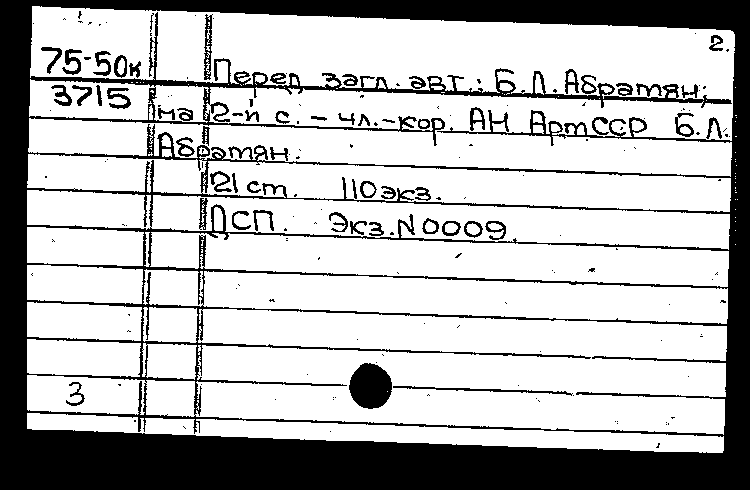 2.
75-50к
3715
Перед загл. авт.: Б.Л. Абрамян;
на 2-й с. – чл.-кор. АН АрмССР Б.Л.
Абрамян.
21 cm. 110 экз.
ДСП. Экз. N 0009.
3